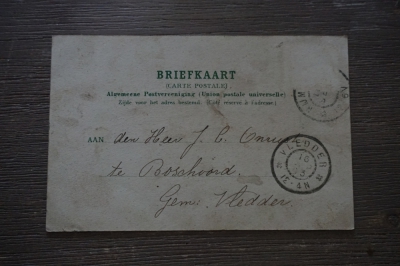 BRIEFKAART
(CARTE POSTALE)
Algemeene Postvereeniging (Union postale universelle)
Zijde voor het adres bestemd. (Côté réservé à l'adresse)
AAN den Heer J. C.
te Boschoord
Gem. Vledder
VLEDDER
12-4N